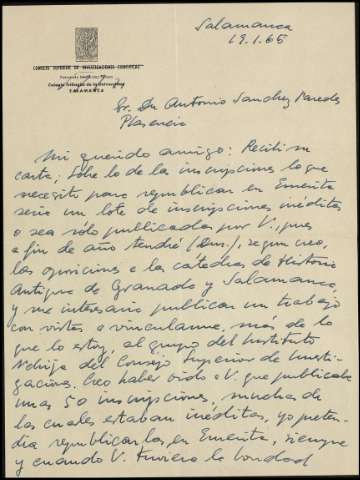 Salamanca
19.1.65
CONSEJO SUPERIOR DE INVESTIGACIONES CIENTIFICAS
SALAMANCA
Sr. Dn Antonio Sanchez Paredes
Plasencia
Mi querido amigo: Recibí su
carta; Sobre lo de las inscripciones lo que
necesito para republicar en Emerita
seria un lote de inscripciones inéditas
o sea sólo publicadas por V., pues
a fin de año tendré (Dm.), segun creo,
las oposiciones a las catedras de Historia
Antigua de Granada y Salamanca,
y me interesaria publicar un trabajo
con vistas a vincularme, más de lo
que lo estoy, al grupo del Instituto
Nebrija del Consejo Superior de Investi-
gaciones. Creo haber oido a V. que publicaba
unas 50 inscripciones, muchas de
las cuales estaban inéditas, yo preten-
dia republicarlas en Emerita, siempre
y cuando V. tuviera la bondad